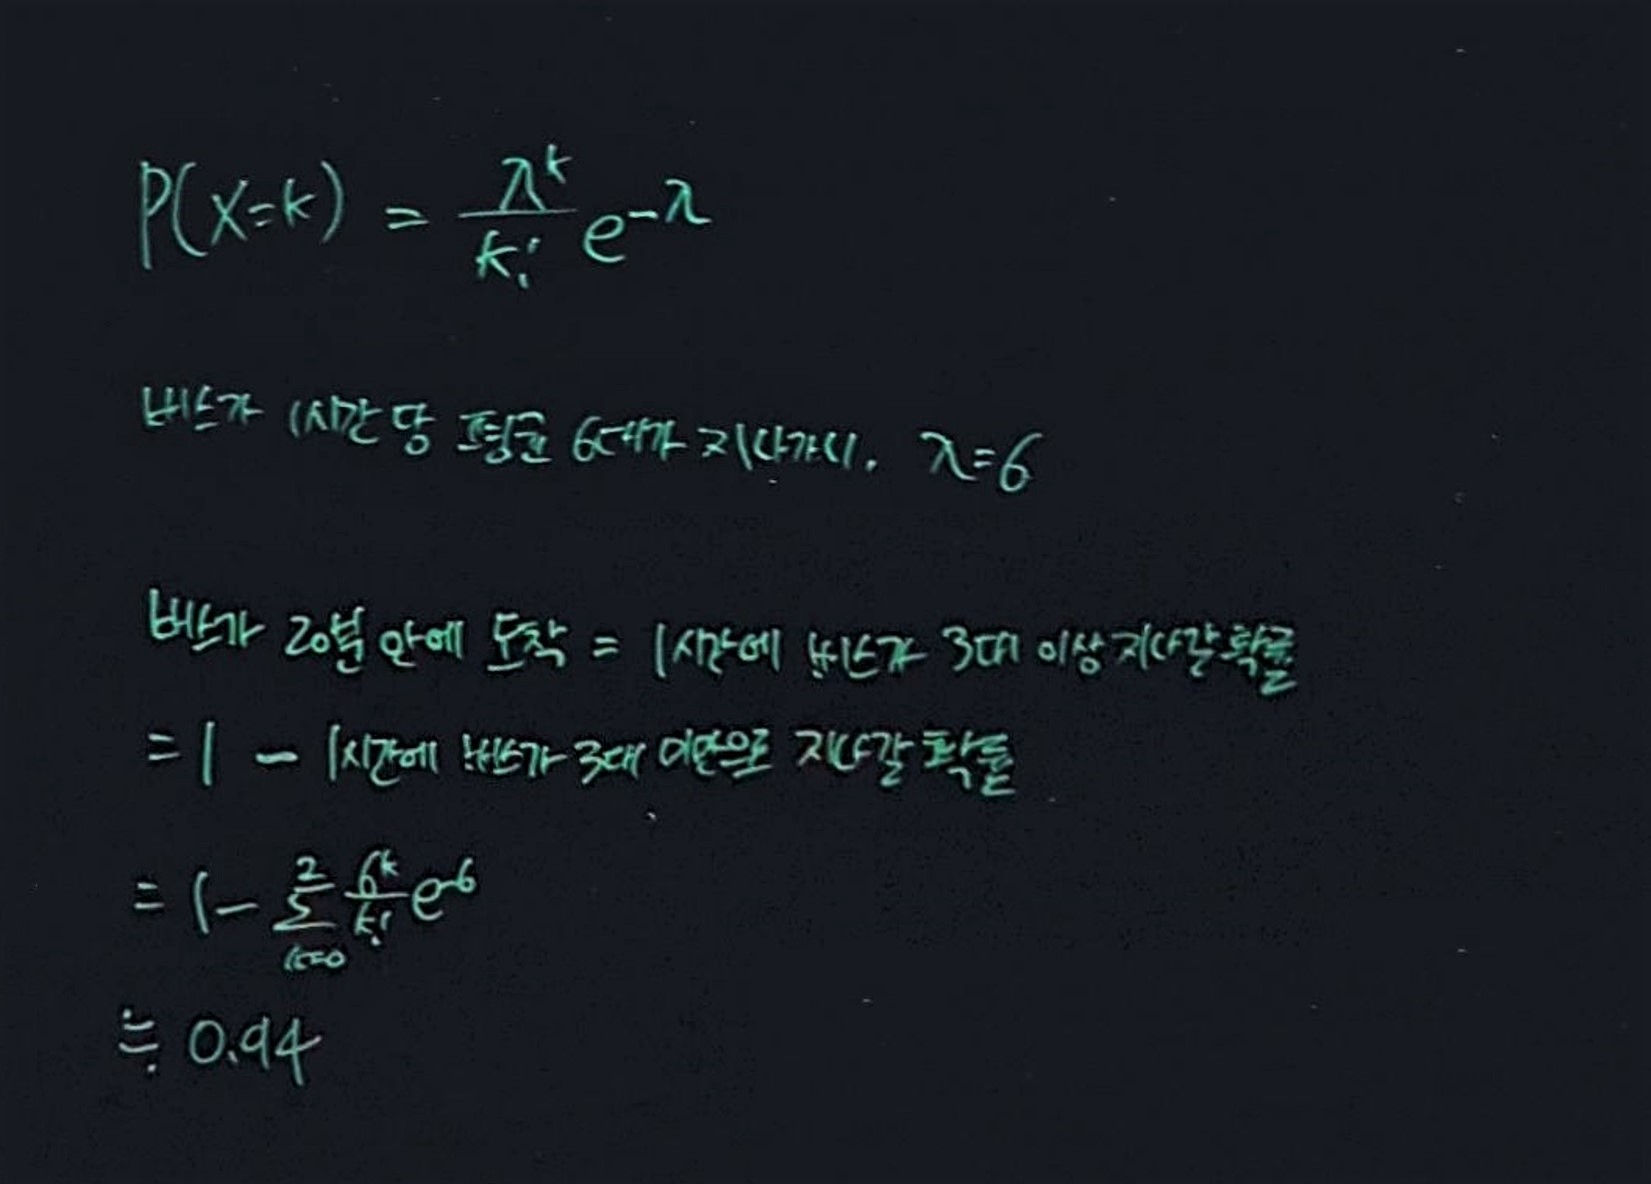 P(X=k) = λ^k / k! e^-λ
버스가 1시간 당 평균 6대가 지나가니. λ=6
버스가 20분 안에 도착 = 1시간에 버스가 3대 이상 지나갈 확률
= 1 - 1시간에 버스가 3대 미만으로 지나갈 확률
= 1 - 2∑k=0 6^k / k! e^-6
≒ 0.94